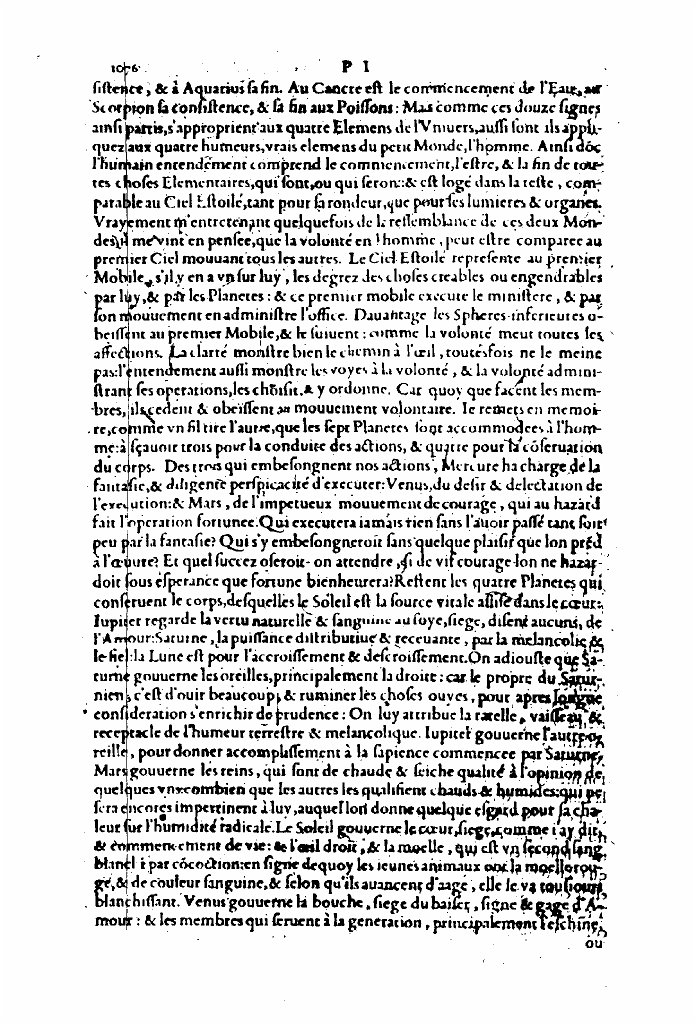 1076 P I
sistence, & à Aquarius sa fin. Au Cancre est le commencement de l'Eau, au
Scorpion sa consistence, & sa fin aux Poissons: Mais comme ces douze signes
ainsi partis, s'approprient aux quatre Elemens de l'Vniuers, aussi sont ils appli-
quez aux quatre humeurs, vrais elemens du petit Monde, l'homme. Ainsi dõc
l'humain entendement comprend le commencement, l'estre, & la fin de tou-
tes choses Elementaires, qui sont, ou qui seront: & est logé dans la teste, com-
parable au Ciel Estoilé, tant pour sa rondeur, que pour ses lumieres & organes.
Vrayement m'entretenant quelquefois de la ressemblance de ces deux Mon-
des, il me vint en pensee, que la volonté en l'homme, peut estre comparee au
premier Ciel mouuant tous les autres. Le Ciel Estoilé represente au premier
Mobile, s'il y en a vn sur luy, les degrez des choses creables ou engendrables
par luy, & par les Planetes: & ce premier mobile execute le ministere, & par
son mouuement en administre l'office. Dauantage les Spheres inferieures o-
beissent au premier Mobile, & le suiuent: comme la volonté meut toutes les
affections. La clarté monstre bien le chemin à l'œil, toutesfois ne le meine
pas: l'entendement aussi monstre les voyes à la volonté, & la volonté admini-
strant ses operations, les choisit, & y ordonne. Car quoy que facent les mem-
bres, ils cedent & obeïssent au mouuement volontaire. Ie remets en memoi-
re, comme vn fil tire l'autre, que les sept Planetes sont accommodees à l'hom-
me: à sçauoir trois pour la conduite des actions, & quatre pour la cõseruation
du corps. Des trois qui embesongnent nos actions, Mercure ha charge de la
fantasie, & diligente perspicacité d'executer: Venus, du desir & delectation de
l'execution: & Mars, de l'impetueux mouuement de courage, qui au hazard
fait l'operation fortunee. Qui executera iamais rien sans l'auoir passé tant soit
peu par la fantasie? Qui s'y embesongneroit sans quelque plaisir que lon prẽd
à l'œuure? Et quel succez oseroit-on attendre, si de vif courage lon ne hazar-
doit sous esperance que fortune bienheurera? Restent les quatre Planetes qui
conseruent le corps, desquelles le Soleil est la source vitale assise dans le cœur:
Iupiter regarde la vertu naturelle & sanguine au foye, siege, disent aucuns, de
l'Amour: Saturne, la puissance distributiue & receuante, par la melancolie &
le fiel: la Lune est pour l'accroissement & descroissement. On adiouste que Sa-
turne gouuerne les oreilles, principalement la droite: car le propre du Satur-
nien, c'est d'ouir beaucoup, & ruminer les choses ouyes, pour apres longue
consideration s'enrichir de prudence: On luy attribue la ratelle, vaisseau &
receptacle de l'humeur terrestre & melancolique. Iupiter gouuerne l'autre o-
reille, pour donner accomplissement à la sapience commencee par Saturne,
Mars gouuerne les reins, qui sont de chaude & seiche qualité à l'opinion de
quelques vns: combien que les autres les qualifient chauds & humides: qui ne
sera encores impertinent à luy, auquel lon donne quelque esgard pour sa cha-
leur sur l'humidité radicale. Le Soleil gouuerne le cœur, siege, comme i'ay dit,
& commencement de vie: & l'œil droit, & la moelle, qui est vn second sang
blanchi par cõcoction: en signe dequoy les ieunes animaux ont la moelle rou-
ge, & de couleur sanguine, & selon qu'ils auancent d'aage, elle se va tousiours
blanchissant. Venus gouuerne la bouche, siege du baiser, signe & gage d'A-
mour: & les membres qui seruent à la generation, principalement l'eschine,
ou